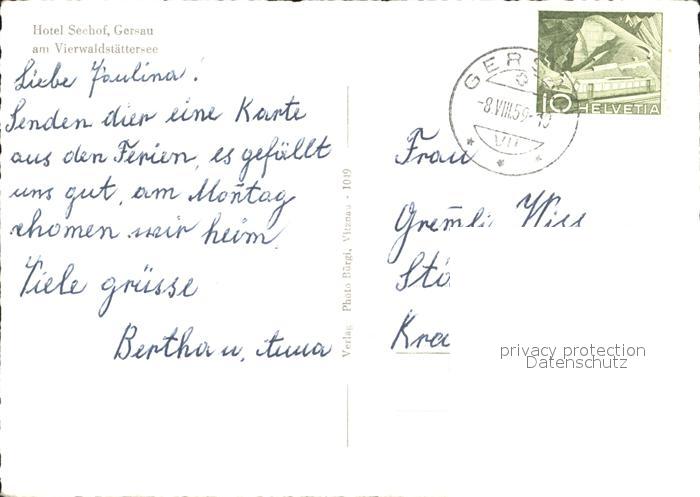 Hotel Seehof, Gersau
am Vierwaldstättersee
Liebe Paulina!
Senden dier eine Karte
aus den Ferien, es gefällt
uns gut, am Montag
chomen wir heim
Viele grüsse
Bertha u, Anna
Verlag Photo Bürgi, Vitznau - 1049
GERSAU
-8.VIII.59-
VII
10 HELVETIA
Frau
Greml
Sta
Kra
privacy protection
Datenschutz